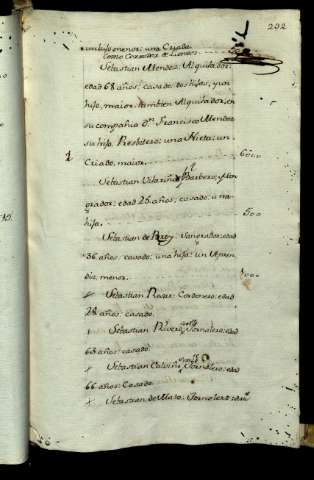 202
un hijo menor: una Criada
como Corredor de Lonxa
Sebastian Mendez Alquilador:
edad 68 años: casado: dos hijas, y un
hijo, maior, tambien Alquilador; en
su compañia Dn. Francisco Mendez
su hijo Presbitero: una Nieta: un
Criado, maior.
600
Sebastian Vilariño Barbero, y San
grador: edad 26 años: casado: una
hija.
500
Sebastian de Sangrador: edad
36 años: casado: una hija: un Apren
diz, menor.
Sebastian Cordonero: edad
28 años: casado.
Sebastian Rivero Jornalero: edad
68 años: casado.
Sebastian Calviño Jornalero: edad
66 años: Casado.
Sebastian de Mato: Jornalero: